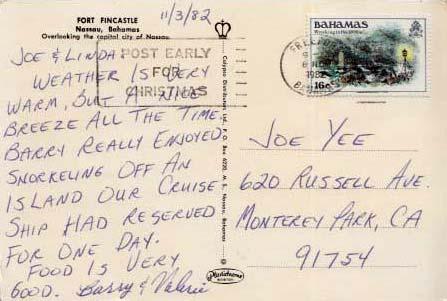 FORT FINCASTLE
Nassau, Bahamas
Overlooking the capital city of Nassau.
11/3/82
JOE & LINDA:
WEATHER IS VERY
WARM, BUT A NICE
BREEZE ALL THE TIME.
BARRY REALLY ENJOYED
SNORKELING OFF AN
ISLAND OUR CRUISE
SHIP HAD RESERVED
FOR ONE DAY.
FOOD IS VERY
GOOD. Barry & Valerie
POST EARLY
FOR
CHRISTMAS
Calypso Distributors Ltd., P.O. Box
Nassau, Bahamas
BAHAMAS
16c
1982
JOE YEE
620 RUSSELL AVE.
MONTEREY PARK, CA
91754